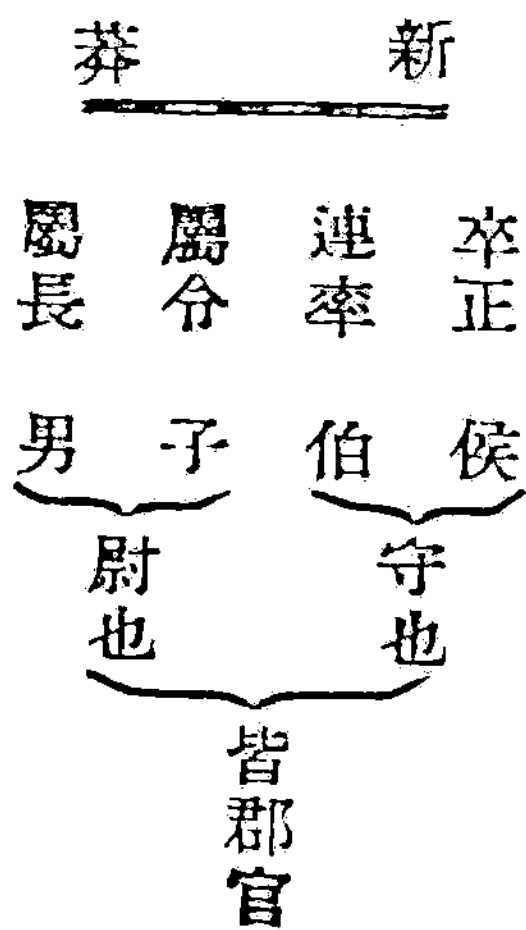 新莽
卒正
連率
屬令
屬長
侯
伯
子
男
守也
尉也
皆郡官